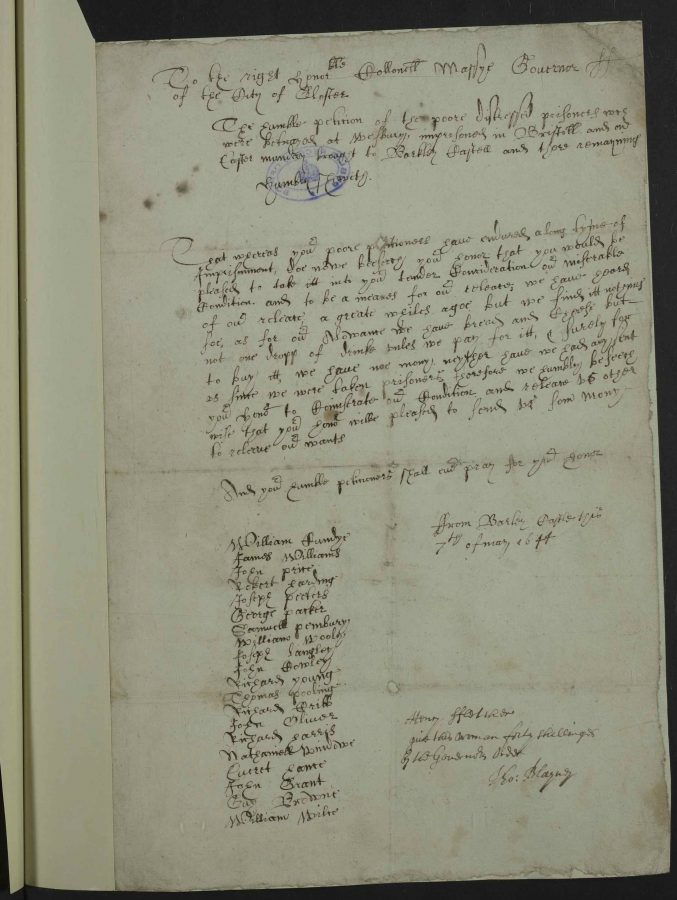 To the right honor^ble Collonell Massye Governor
of the City of Gloster
The humble petition of the poore distressed prisoners who
were betrayed at Westbury, imprisoned in Bristoll and on
Easter munday brought to Barkley Castell and there remayning
Humbly sheweth.
That whereas yo^r poore petitioners have endured a long tyme of
Imprisonment, doe nowe beseech yo^r honor that you would be
pleased to take itt into yo^r tender Consideration our miserable
Condition and to be a meanes for our release; we have heard
of our release a great whiles agoe but we find itt nothing
soe, as for our Allowance we have bread and cheese but
not one dropp of drinke unles we pay for itt, & surely for
to buy itt, we have noe mony, neyther have we had any sent
us since we were taken prisoners, therefore we humbly beseech
yo^r hono^r to Comiserate our Condition and release us other
wise that yo^r hono^r wilbe pleased to send us som mony
to releeve our wants
And yo^r humble petitioners shall ever pray for yo^r honor
From Barkley Castle this
7^th of may 1644
William Gundye
James Williams
John price
Robert harding
Joseph peeters
George parker
Samuell pembury
William Wooly
Joseph Langley
John Cowley
Richard young
Thomas pooling
Richard Cribb
John Oliver
Richard harris
Nathaniell Wintowe
Everet
John Grant
Browne
William Wilse
Henry
give this woman forty shillinges
by the Governors order
Tho: Blayney